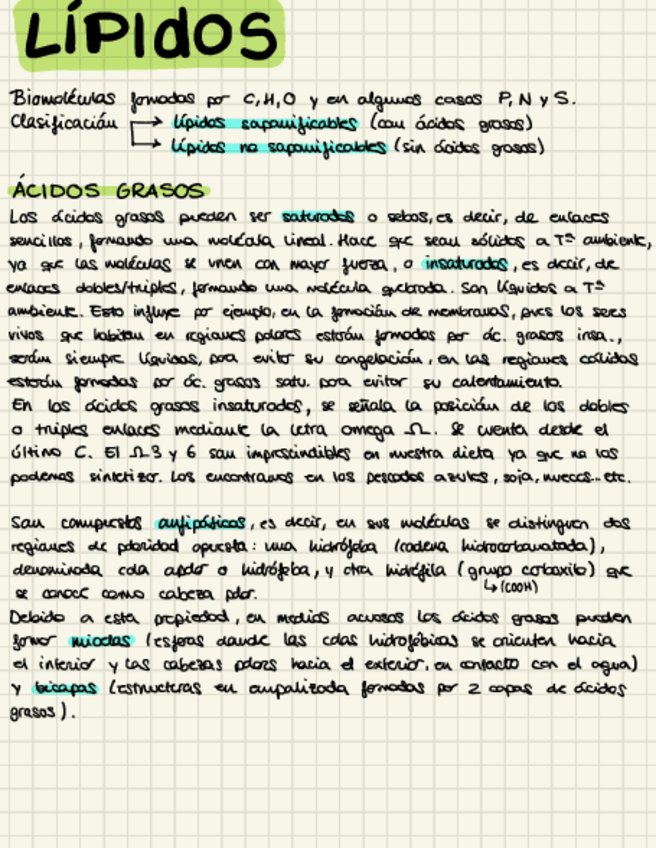 LÍPIDOS
Biomoléculas formadas por C, H, O y en algunos casos P, N y S.
Clasificación → lípidos saponificables (con ácidos grasos)
→ lípidos no saponificables (sin ácidos grasos)
ÁCIDOS GRASOS
Los ácidos grasos pueden ser saturados o sebos, es decir, de enlaces
sencillos, formando una molécula lineal. Hace que sean sólidos a Tª ambiente,
ya que las moléculas se unen con mayor fuerza, o insaturados, es decir, de
enlaces dobles/triples, formando una molécula quebrada. Son líquidos a Tª
ambiente. Esto influye por ejemplo, en la formación de membranas, pues los seres
vivos que habitan en regiones polares estarán formadas por ác. grasos insa.,
serán siempre líquidas, para evitar su congelación, en las regiones cálidas
estarán formadas por ác. grasos satu. para evitar su calentamiento.
En los ácidos grasos insaturados, se señala la posición de los dobles
o triples enlaces mediante la letra omega Ω. Se cuenta desde el
último C. El Ω 3 y 6 son imprescindibles en nuestra dieta ya que no los
podemos sintetizar. Los encontramos en los pescados azules, soja, nueces... etc.
Son compuestos anfipáticos, es decir, en sus moléculas se distinguen dos
regiones de polaridad opuesta: una hidrófoba (cadena hidrocarbonatada),
denominada cola apolar o hidrófoba, y otra hidrófila (grupo carboxilo) que
↳ (COOH)
se conoce como cabeza polar.
Debido a esta propiedad, en medios acuosos los ácidos grasos pueden
formar micelas (esferas donde las colas hidrofóbicas se orienten hacia
el interior y las cabezas polares hacia el exterior, en contacto con el agua)
y bicapas (estructuras en empalizada formadas por 2 capas de ácidos
grasos).